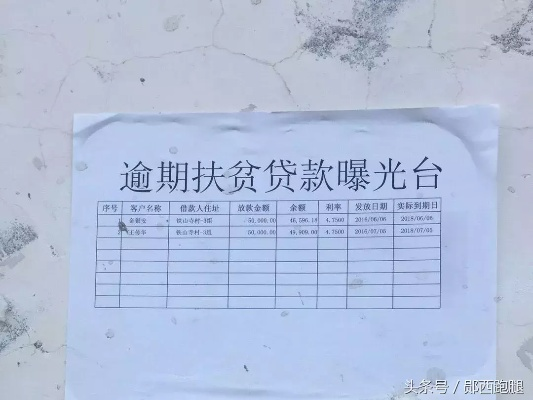 逾期扶贫贷款曝光台
序号 客户名称 借款人住址 放款金额 余额 利率 发放日期 实际到期日
50,000.00 4.7500 2016/06/06 2018/06/06
50,000.00 49,909.00 4.7500 2016/07/05 2018/07/05
头条号 / 郧西跑腿